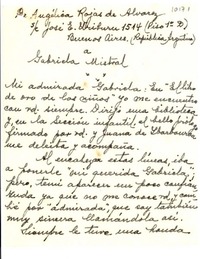 De Angélica Rojas de Alvaro
c/c José E. Uriburu 1514 (Piso 1º D)
Buenos Aires, (República Argentina)
a
Gabriela Mistral
Mi admirada Gabriela: En "El libro
de oro de los niños" yo me encuentro
con Ud. siempre. Dirijo una biblioteca
y, en la sección infantil, el bello prólogo
firmado por Ud. y Juana de Ibarbourou
me deleita y acompaña.
Al encabezar estas líneas, iba
a ponerle "mi querida Gabriela",
pero, temí aparecer un poco confian-
zuda ya que no me conoce Ud. y cambié
por "admirada", que soy también
muy sincera llamándola así.
Siempre le tuve una honda